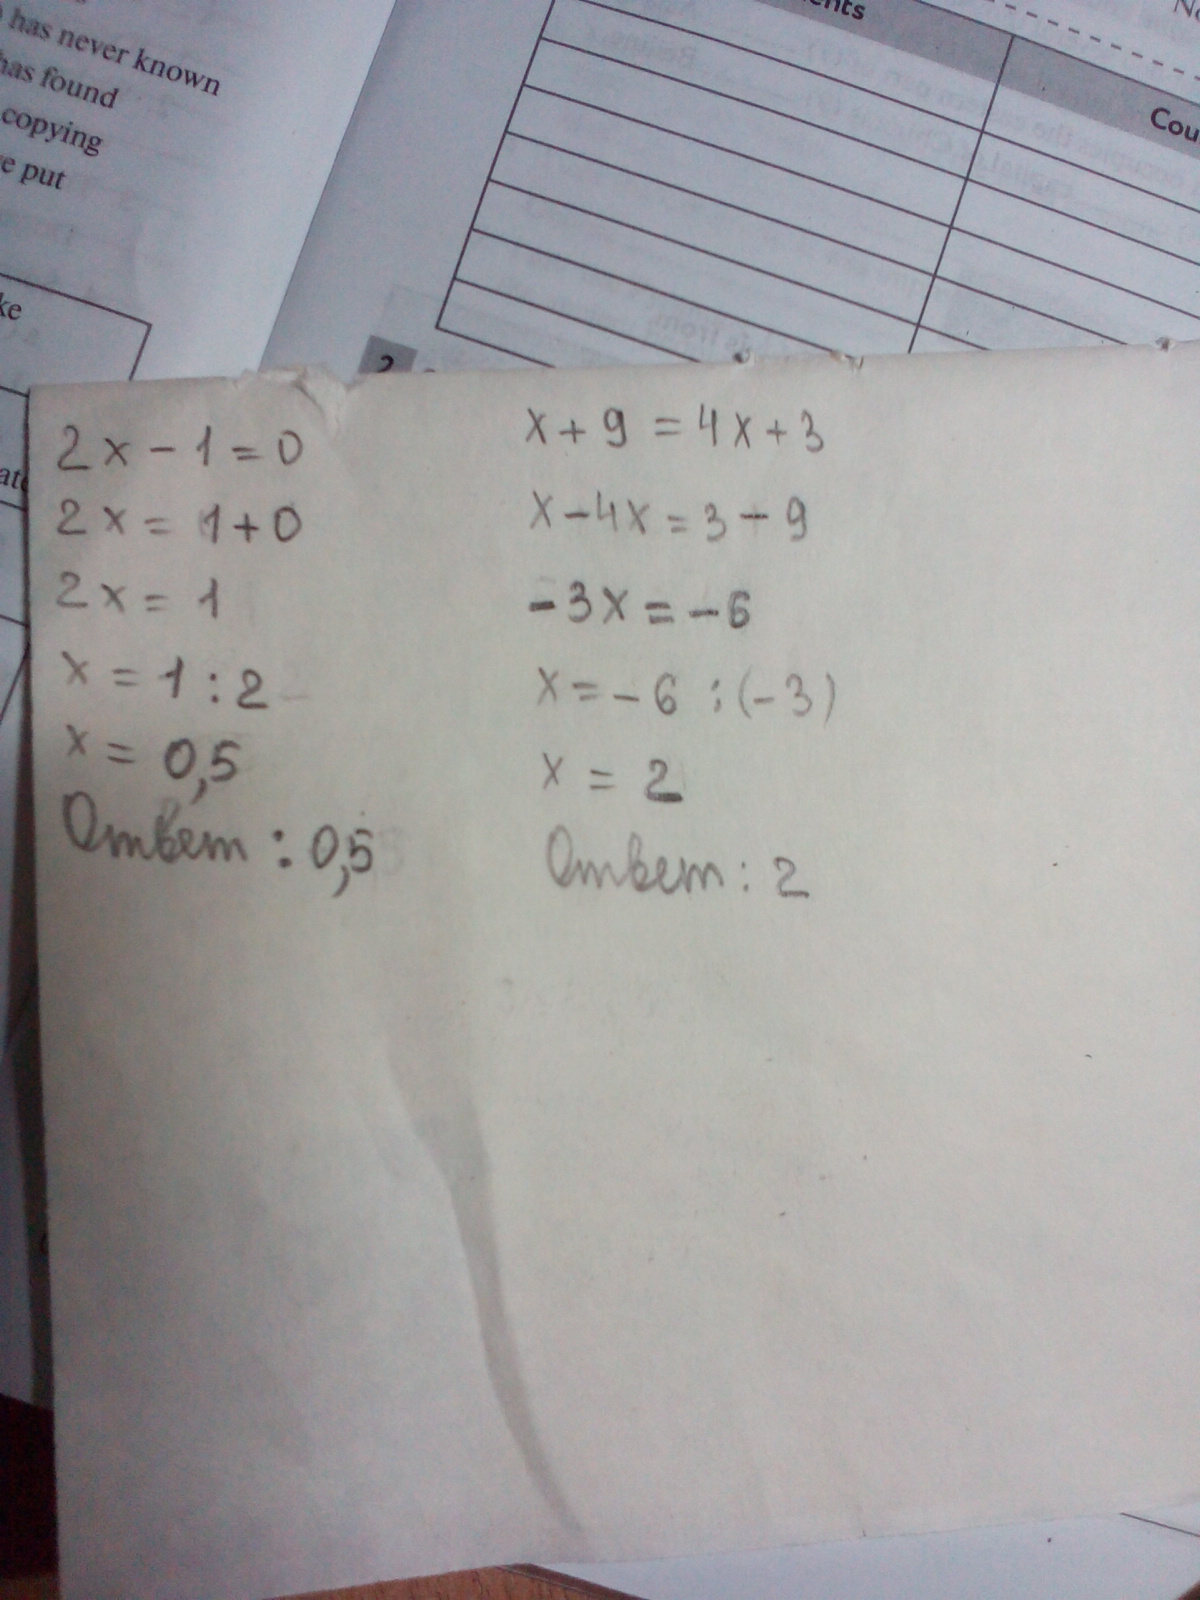 has never known
has found
copying
put
2
2x - 1 = 0
2x = 1 + 0
2x = 1
x = 1 : 2
x = 0,5
Ответ : 0,5
x + 9 = 4x + 3
x - 4x = 3 - 9
-3x = -6
x = -6 : (-3)
x = 2
Ответ : 2